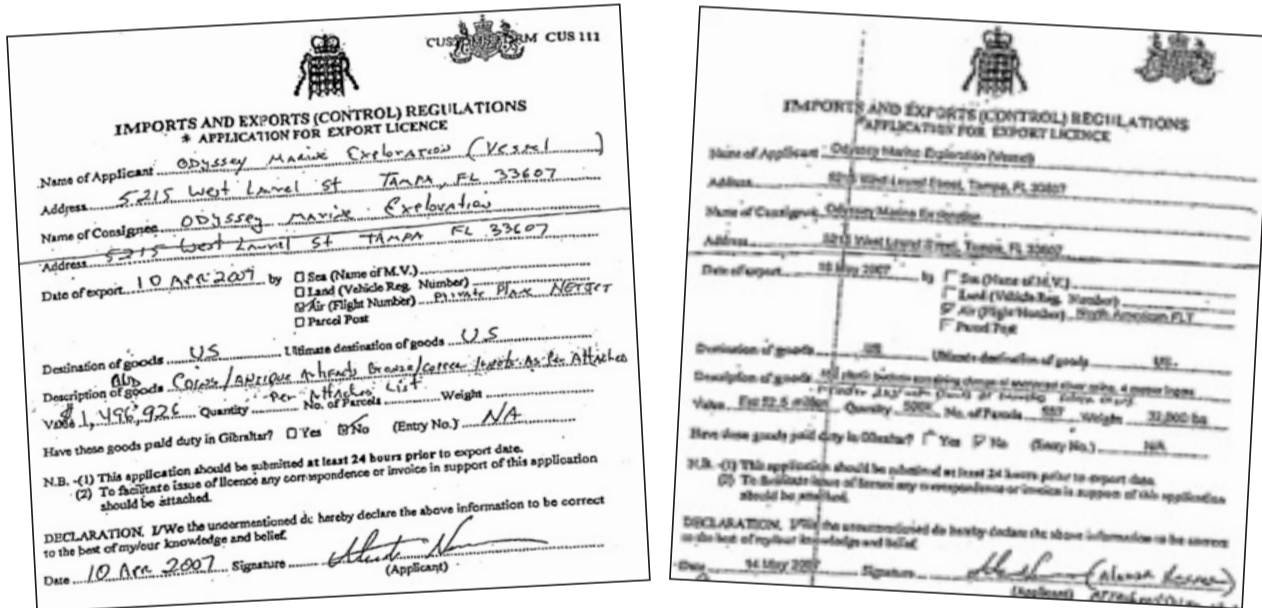 CUSTOMS FORM CUS 111
IMPORTS AND EXPORTS (CONTROL) REGULATIONS
* APPLICATION FOR EXPORT LICENCE
Name of Applicant ODYSSEY MARINE Exploration (Vessel)
Address 5215 West Laurel St TAMPA, FL 33607
Name of Consignee ODYSSEY MARINE Exploration
Address 5215 West Laurel St TAMPA FL 33607
Date of export 10 Apr 2007 by
☐ Sea (Name of M.V.)
☐ Land (Vehicle Reg. Number)
☑ Air (Flight Number) Private Plane NETJET
☐ Parcel Post
Destination of goods US Ultimate destination of goods US
Description of goods OLD Coins/Antique Artifacts Bronze/copper Ingots As Per Attached
Value $1,496,926 Quantity Per Attached List No. of Parcels Weight
Have these goods paid duty in Gibraltar? ☐ Yes ☑ No (Entry No.) NA
N.B. -(1) This application should be submitted at least 24 hours prior to export date.
(2) To facilitate issue of licence any correspondence or invoice in support of this application
should be attached.
DECLARATION. I/We the undermentioned do hereby declare the above information to be correct
to the best of my/our knowledge and belief.
Date 10 Apr 2007 Signature
(Applicant)
IMPORTS AND EXPORTS (CONTROL) REGULATIONS
*APPLICATION FOR EXPORT LICENCE
Name of Applicant Odyssey Marine Exploration (Vessel)
Address 5215 West Laurel Street, Tampa, FL 33607
Name of Consignee Odyssey Marine Exploration
Address 5215 West Laurel Street, Tampa, FL 33607
Date of export May 2007 by
☐ Sea (Name of M.V.)
☐ Land (Vehicle Reg. Number)
☑ Air (Flight Number) North American FLT
☐ Parcel Post
Destination of goods US Ultimate destination of goods US
Description of goods plastic buckets containing
Value Est $2.5 million Quantity No. of Parcels Weight 32,000 lbs
Have these goods paid duty in Gibraltar? ☐ Yes ☑ No (Entry No.) N/A
N.B. -(1) This application should be submitted at least 24 hours prior to export date.
(2) To facilitate issue of licence any correspondence or invoice in support of this application
should be attached.
DECLARATION. I/We the undermentioned do hereby declare the above information to be correct
to the best of my/our knowledge and belief.
Date 14 May 2007 Signature
(Applicant)